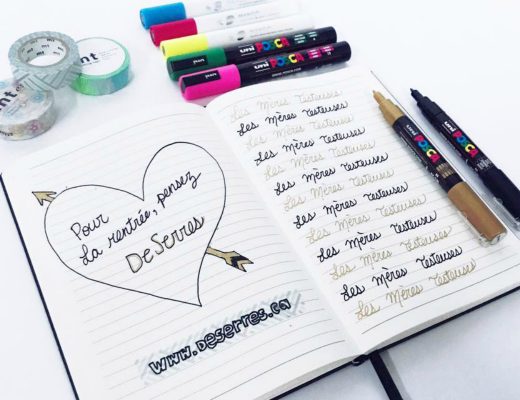 Pour
la rentrée, pensez
DeSerres
www.deserres.ca
Les Mères Testeuses
Les Mères Testeuses
Les Mères Testeuses
Les Mères Testeuses
Les Mères Testeuses
Les Mères Testeuses
Les Mères Testeuses
Les Mères Testeuses
Les Mères Testeuses
Les Mères Testeuses
Les Mères Testeuses
Les Mères Testeuses
Les Mères Testeuses
uni POSCA
uni POSCA
uni POSCA
uni POSCA
mt